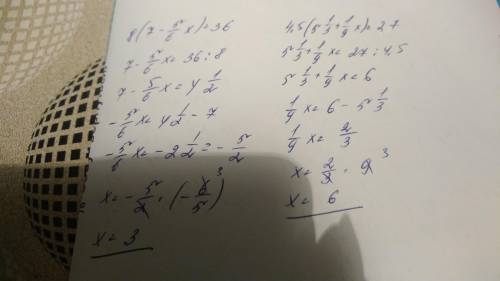 8(7 - 5/6 x) = 36
7 - 5/6 x = 36 : 8
7 - 5/6 x = 4 1/2
-5/6 x = 4 1/2 - 7
-5/6 x = -2 1/2 = -5/2
x = -5/2 · (-6/5) 3
x = 3
4,5(5 1/3 + 1/9 x) = 27
5 1/3 + 1/9 x = 27 : 4,5
5 1/3 + 1/9 x = 6
1/9 x = 6 - 5 1/3
1/9 x = 2/3
x = 2/3 · 9 3
x = 6